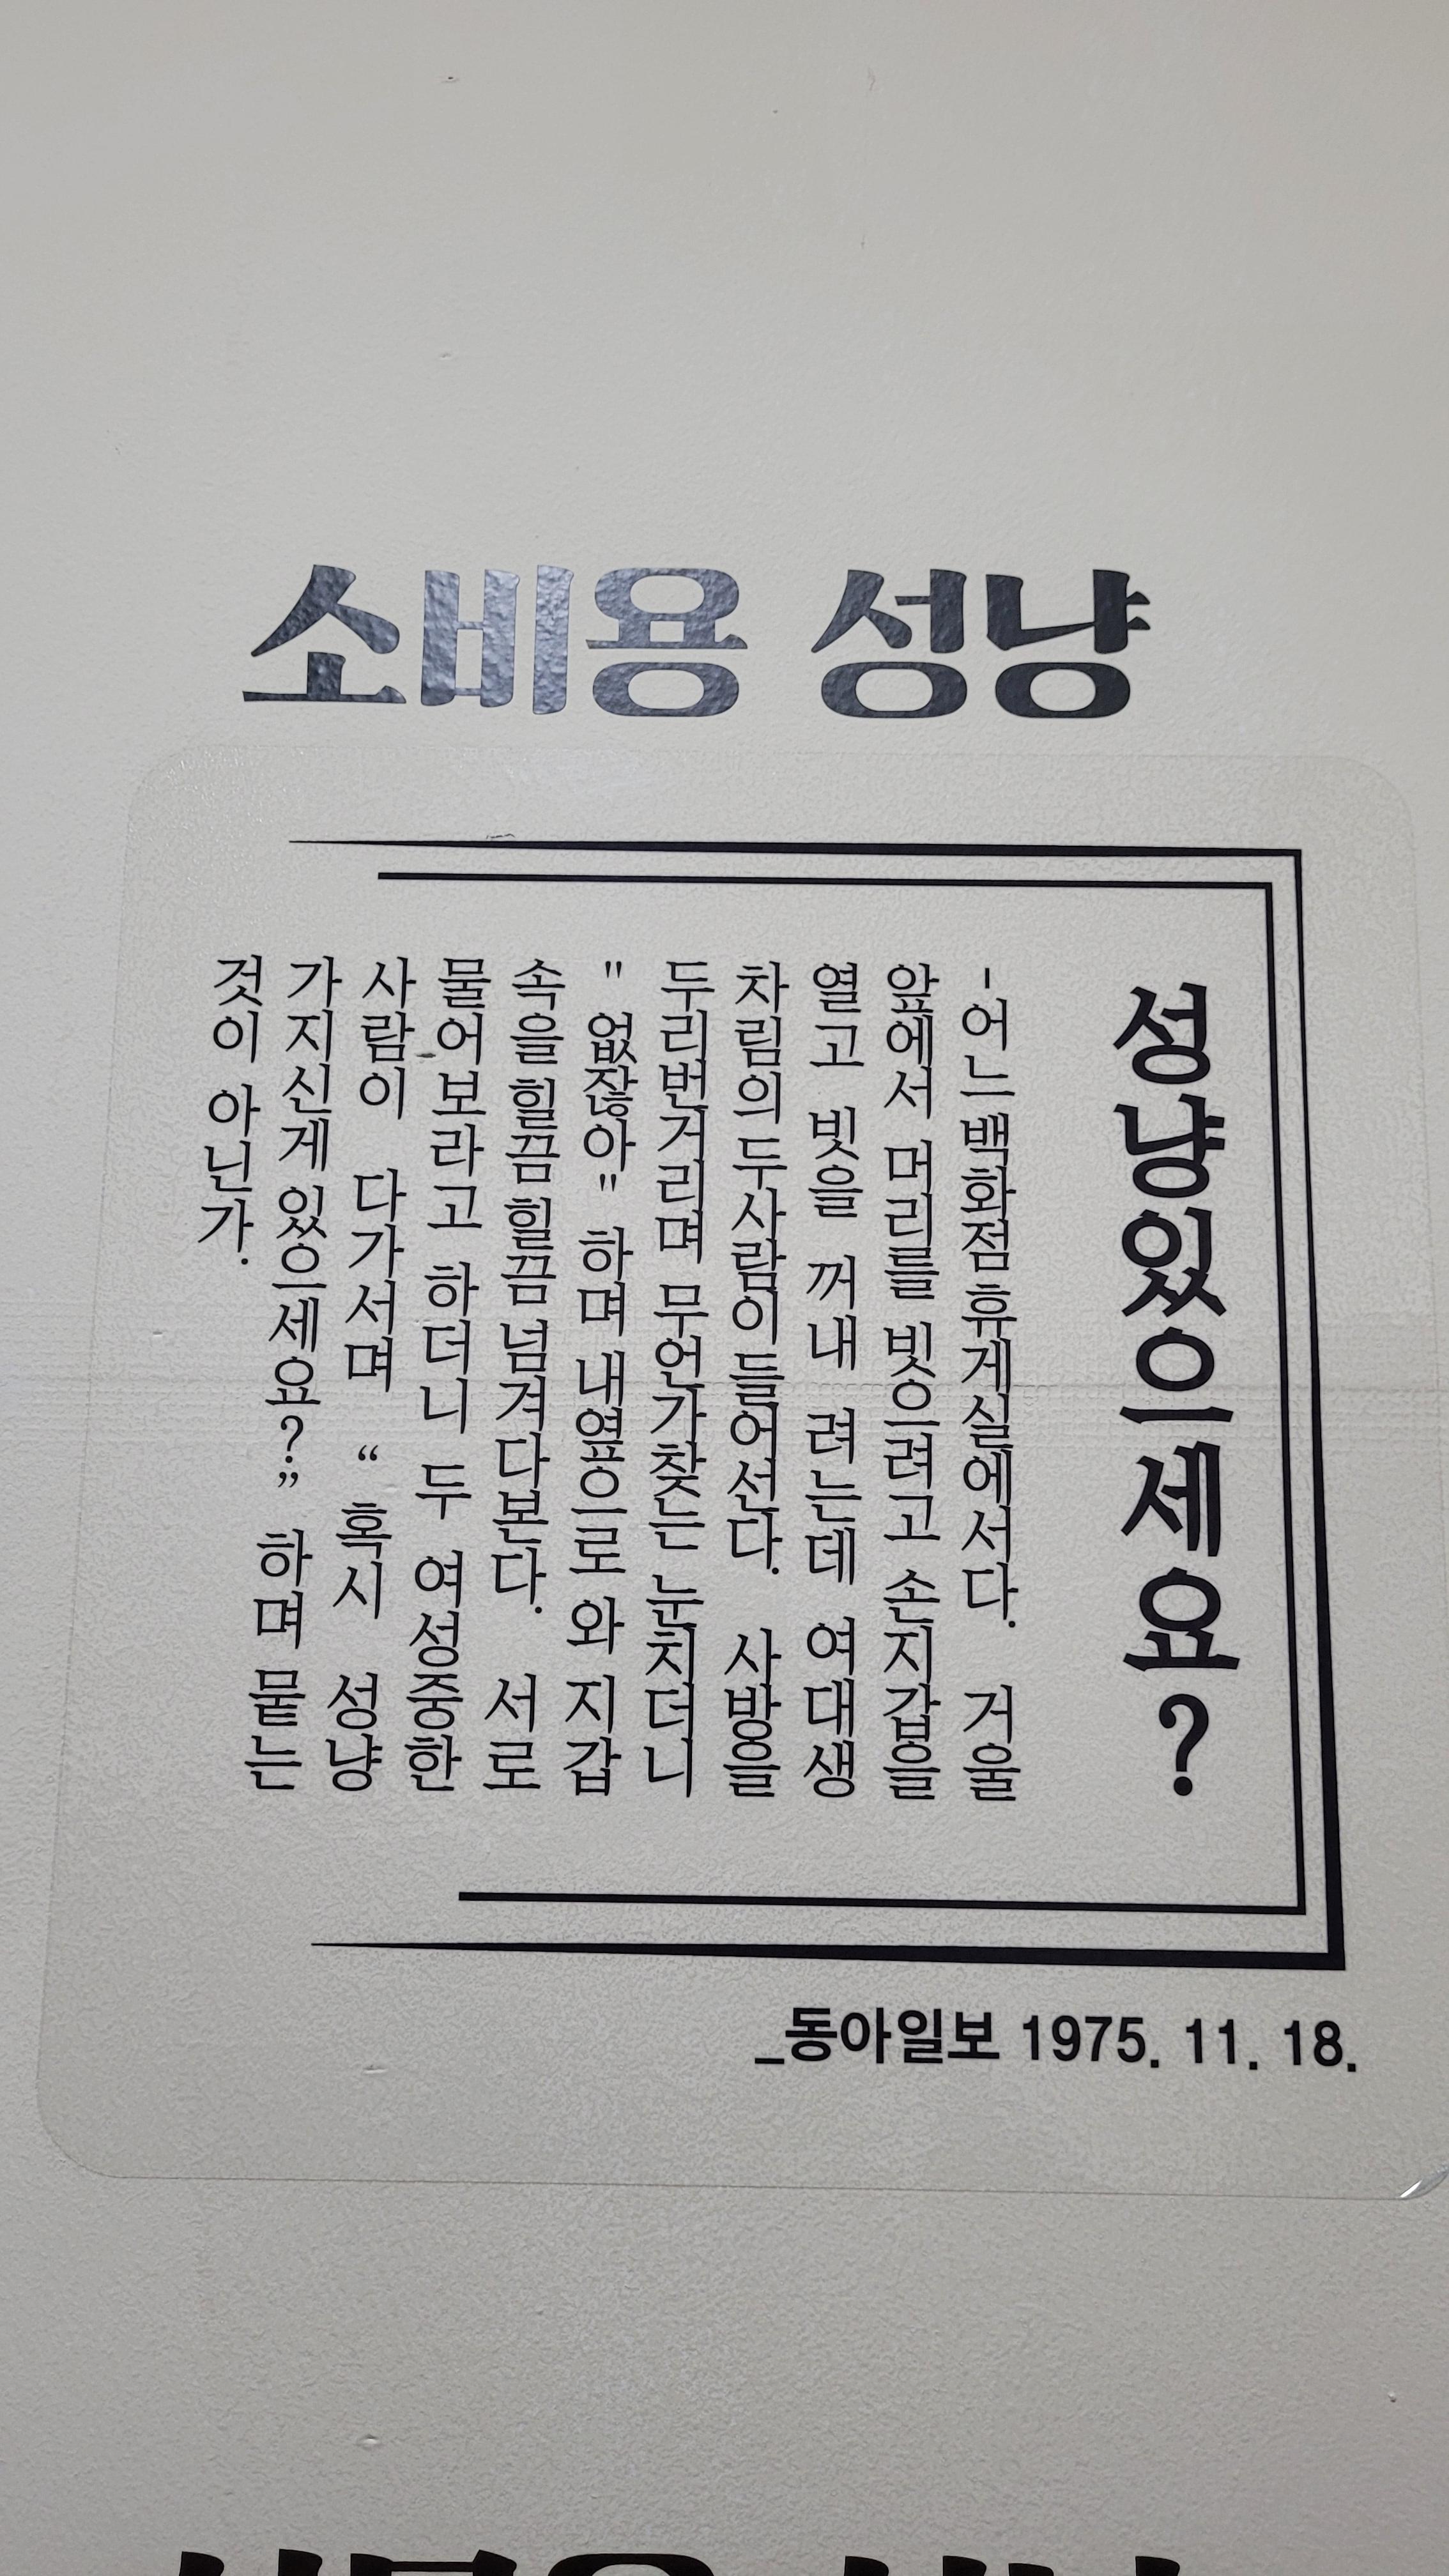 소비용 성냥
성냥있으세요?
-어느 백화점 휴게실에서다. 거울
앞에서 머리를 빗으려고 손지갑을
열고 빗을 꺼내 려는데 여대생
차림의 두사람이 들어선다. 사방을
두리번거리며 무언가찾는 눈치더니
" 없잖아" 하며 내옆으로 와 지갑
속을 힐끔힐끔 넘겨다본다. 서로
물어보라고 하더니 두 여성중한
사람이 다가서며 “혹시 성냥
가지신게 있으세요?” 하며 뭍는
것이 아닌가.
_동아일보 1975. 11. 18.